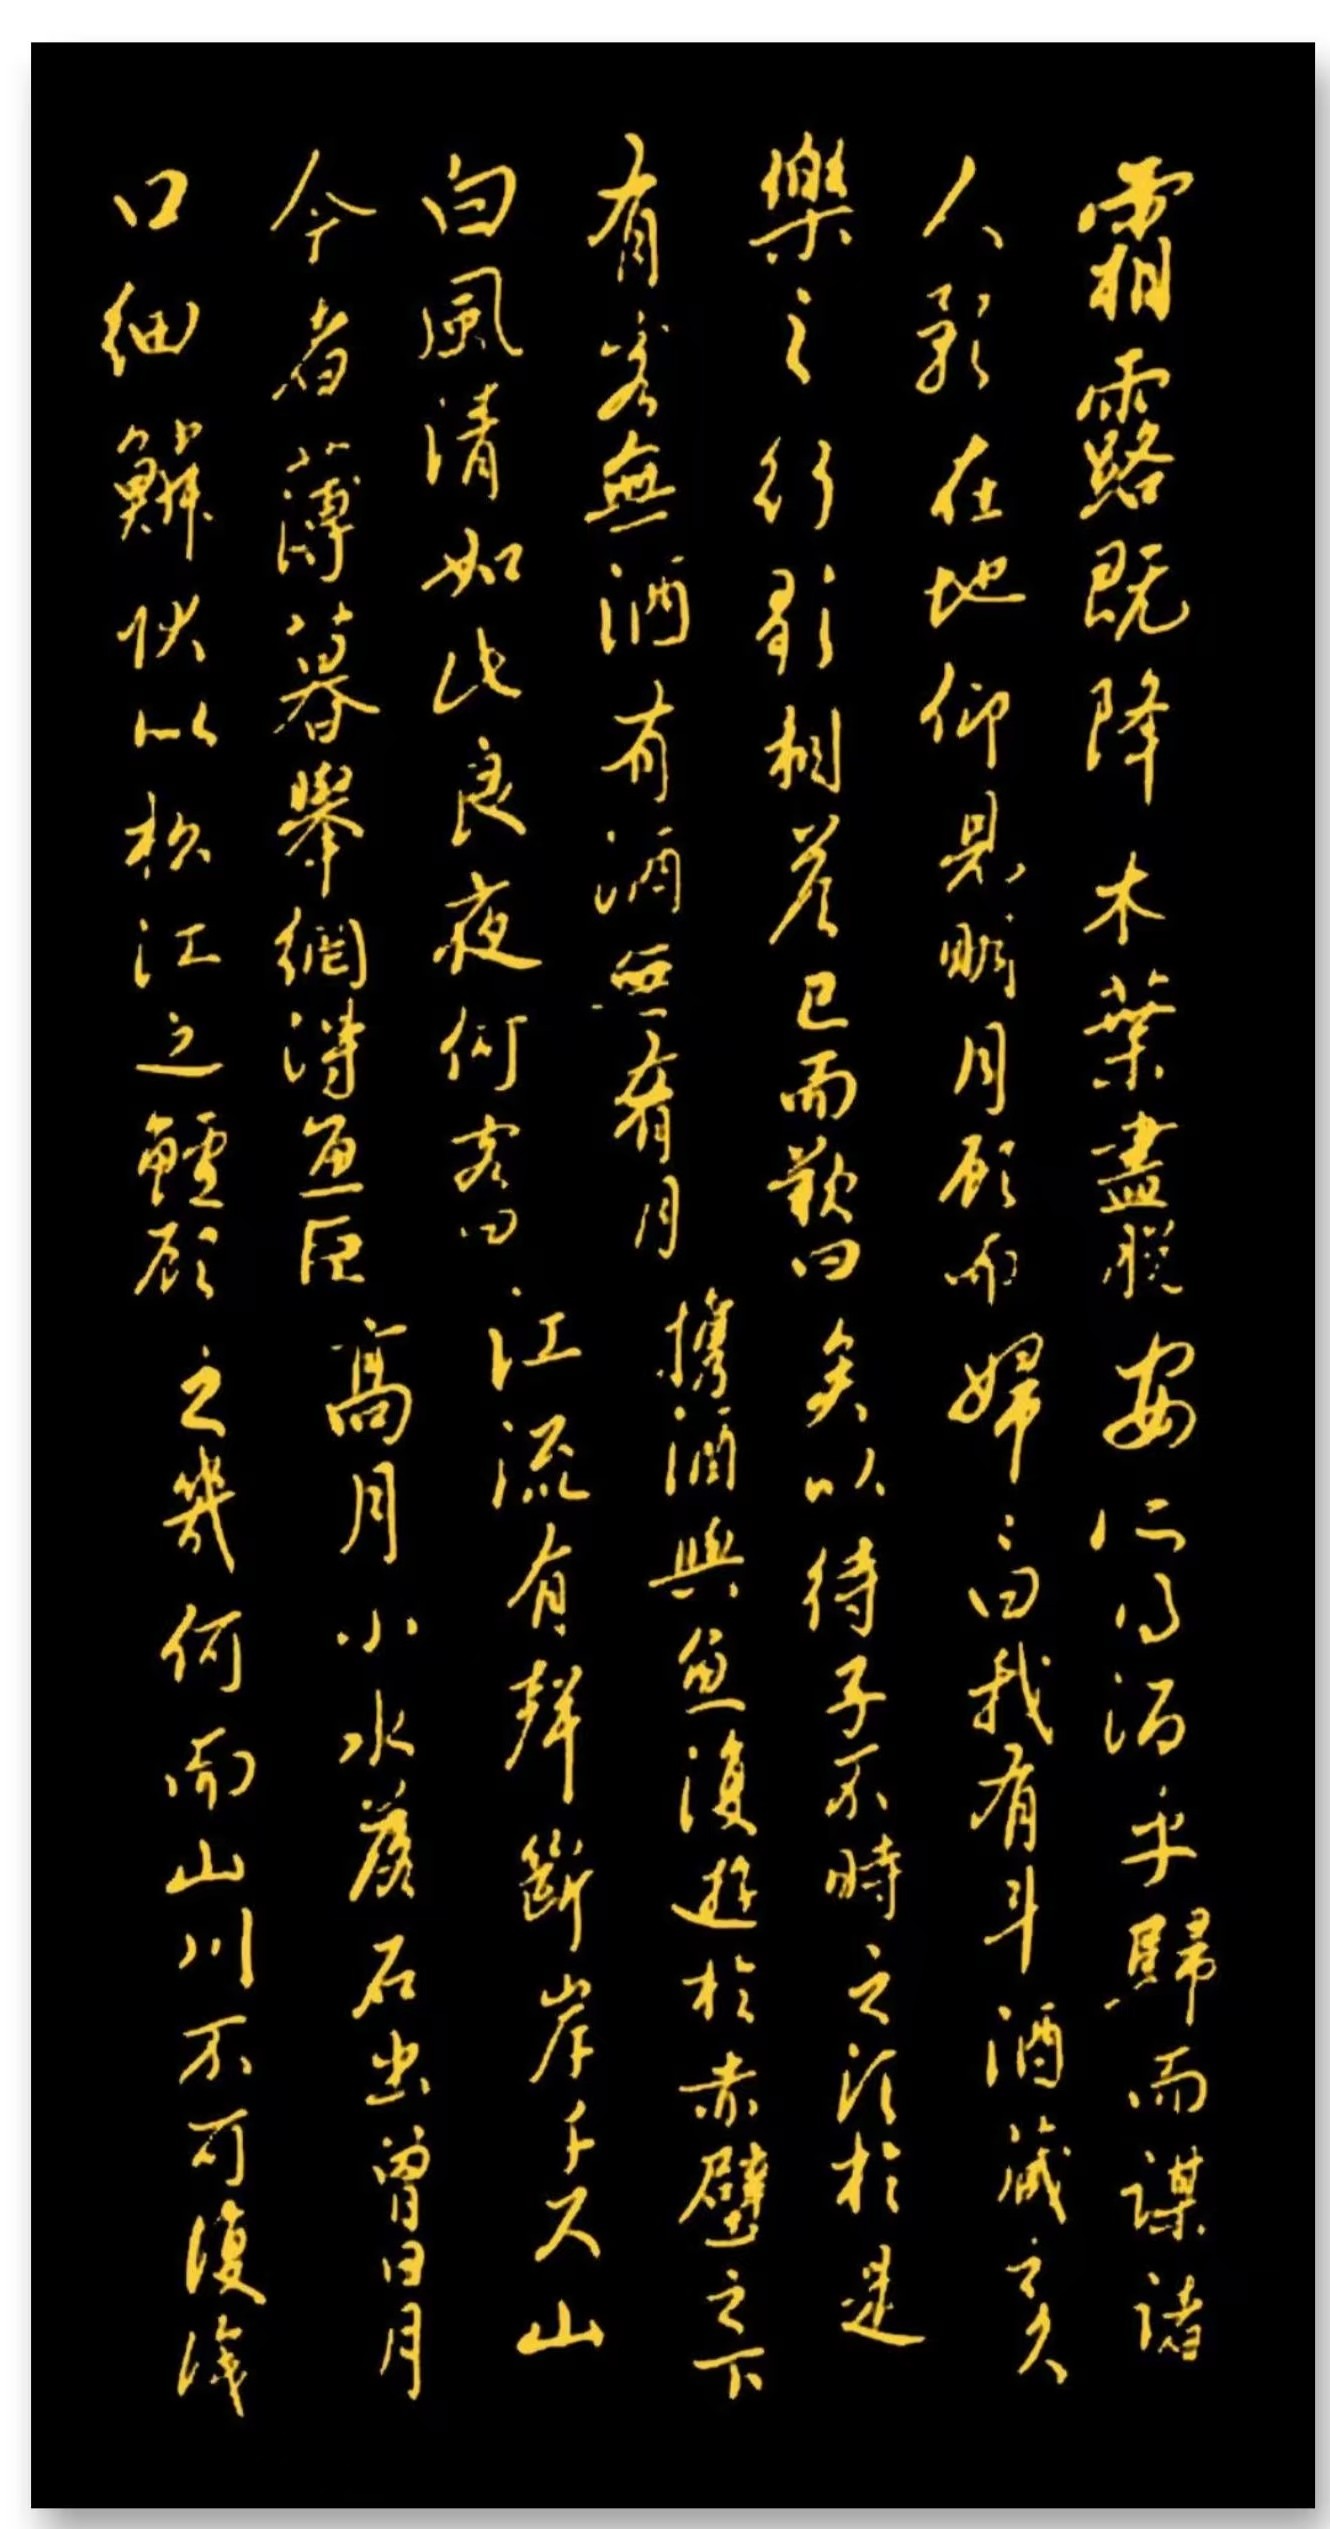 霜露既降木葉盡脫
人影在地仰見明月顧而
樂之行歌相答已而歎曰
有客無酒有酒無肴月
白風清如此良夜何客曰
今者薄暮舉網得魚巨
口細鱗狀似松江之鱸顧
安所得酒乎歸而謀諸
婦〻曰我有斗酒藏之久
矣以待子不時之須於是
攜酒與魚復遊於赤壁之下
江流有聲斷岸千尺山
高月小水落石出曾日月
之幾何而山川不可復識